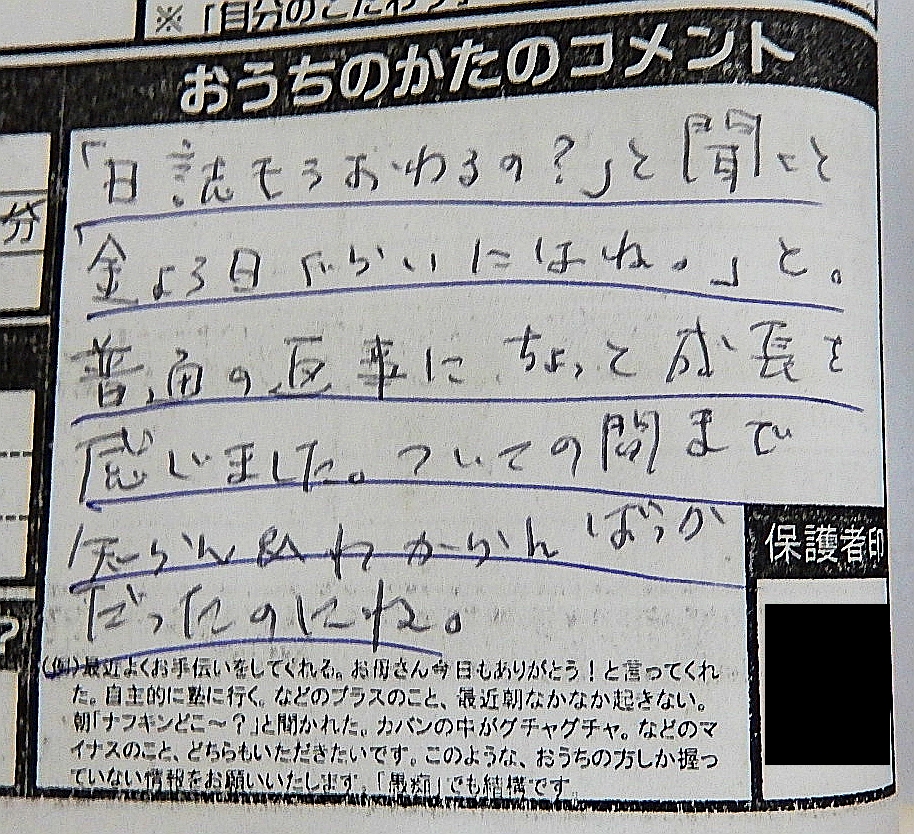 ※「自分のこだわり
おうちのかたのコメント
「日誌もうおわるの？」と聞くと
「金よう日ぐらいにはね。」と。
普通の返事にちょっと成長を
感じました。ついこの間まで
知らん&わからんばっか
だったのにね。
分
保護者印
?
(例)最近よくお手伝いをしてくれる。お母さん今日もありがとう！と言ってくれ
た。自主的に塾に行く。などのプラスのこと、最近朝なかなか起きない。
朝「ナフキンどこ～？」と聞かれた。カバンの中がグチャグチャ。などのマ
イナスのこと、どちらもいただきたいです。このような、おうちの方しか握っ
ていない情報をお願いいたします。「愚痴」でも結構です。